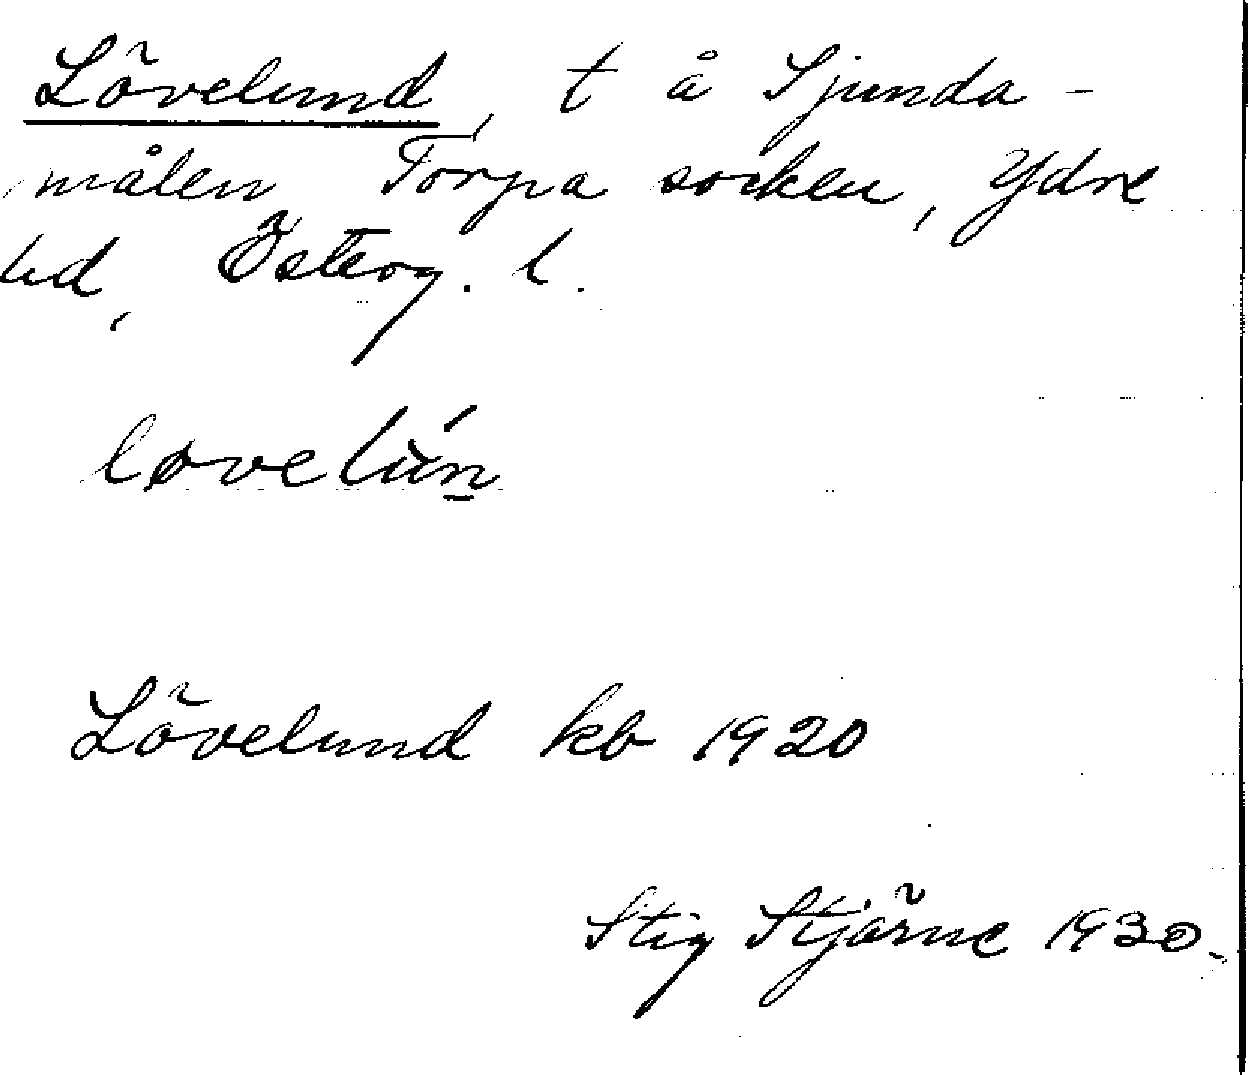 Lövelund, t å Sjunda-
målen Torpa socken, Ydre
hd, Österg. l.
løvelún̲
Lövelund kb 1920
Stig Stjärne 1930.